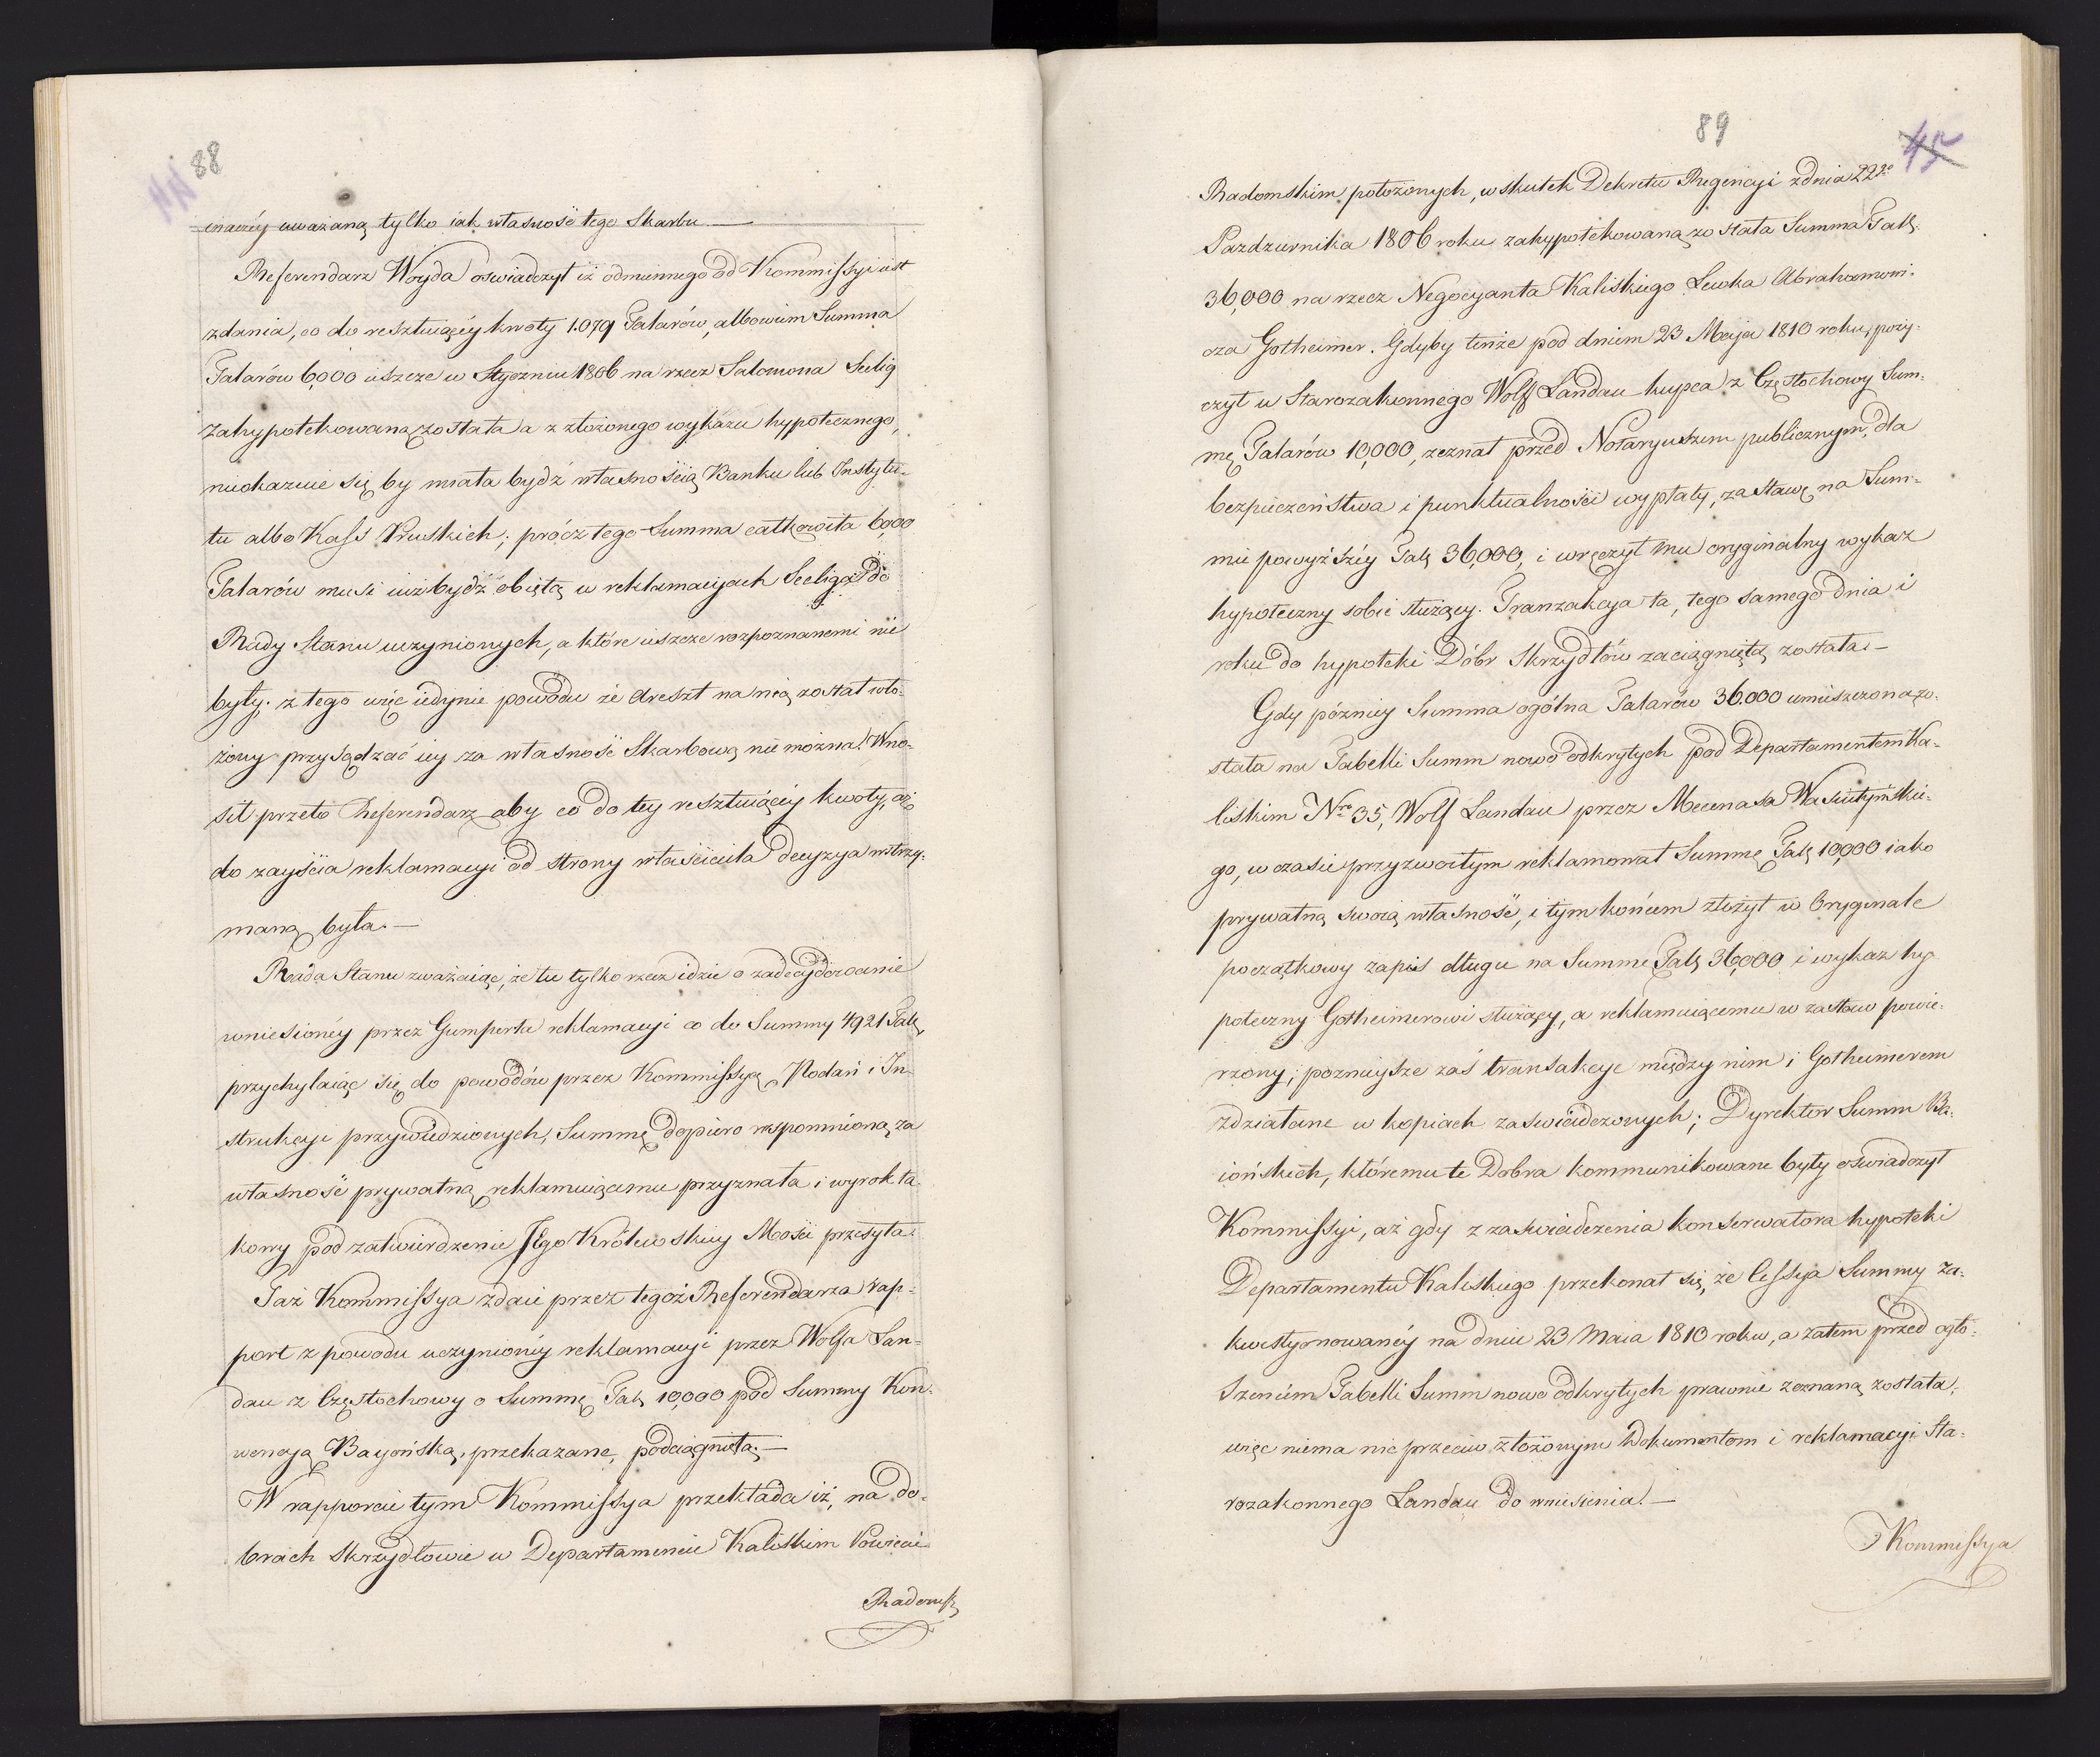 88
inaczéy uważaną tylko iak własność tego Skarbu.—
Referendarz Woyda oswiadczył iż odmiennego od Kommissyi iest
zdania, co do resztuiącéy kwoty 1.079 Talarów, albowiem Summa
Talarów 6,000 ieszcze w Styczniu 1806 na rzecz Salomona Seelig
zahypotekowaną została a z złożonego wykazu hypotecznego,
nieokazuie się by miała bydź własnością Banku lub Instytu-
tu albo Kass Pruskich; prócz tego Summa całkowita 6,000
Talarów musi iuż bydź obiętą w reklamacyach Seeliga do
Rady Stanu uczynionych, a które ieszcze rozpoznanemi nie
były; z tego więc iedynie powodu że Areszt na nią został wło-
żony przysądzać iey za własność Skarbową nie można. Wno-
sił przeto Referendarz aby co do tey resztuiącéy kwoty, aż
do zayścia reklamacyi od strony właściciela decyzya wstrzy-
maną była.—
Rada Stanu zważaiąc, że tu tylko rzecz idzie o zadecydowanie
wniesionéy przez Gumperta reklamacyi co do Summy 4921 Tal,
przychylaiąc się do powodów przez Kommissyą Podań i In-
strukcyi przywiedzionych, Summę dopiero wspomnioną za
własność prywatną reklamuiącemu przyznała i wyrok ta
kowy pod zatwierdzenie JEgo Królewskiey Mości przesyła.
Taż Kommissya zdaie przez tegoż Referendarza rap-
port z powodu uczynionéy reklamacyi przez Wolfa Lan-
dau z Częstochowy o Summę Tal 10,000 pod Summy Kon-
wencyą Bayońską, przekazane, podciągniętą.—
W rapporcie tym Kommissya przekłada iż, na do-
brach Skrzydłowie w Departamencie Kaliskim Powiecie
Radomsk
89
45
Radomskim położonych, w skutek Dekretu Regencyi z dnia 22go
Pazdziernika 1806 roku zahypotekowaną została Summa Tal.
36,000 na rzecz Negocyanta Kaliskiego Lewka Abrahamowi-
cza Gotheimer. Gdyby tenże pod dniem 23 Maja 1810 roku, poży-
czył u Starozakonnego Wolff Landau kupca z Częstochowy Sum-
mę Talarów 10,000, zeznał przed Notaryuszem publicznym, dla
bezpieczeństwa i punktualności wypłaty, zastawę na Sum-
mie powyższéy Tal 36,000, i wręczył mu oryginalny wykaz
hypoteczny sobie służący. Tranzakcya ta, tego samego dnia i
roku do hypoteki Dóbr Skrzydłów zaciągniętą została.—
Gdy późniey Summa ogólna Talarów 36.000 umieszczoną zo-
stała na Tabelli Summ nowo odkrytych pod Departamentem Ka-
liskim Nro 35, Wolf Landau przez Mecenasa Wasiutyńskie-
go, w czasie przyzwoitym reklamował Summę Tal 10,000 iako
prywatną swoią własność, i tym końcem złożył w Oryginale
początkowy zapis długu na Summę Tal 36,000 i wykaz hy
poteczny Gotheimerowi służący, a reklamuiącemu w zastaw powie-
rzony; pozniejsze zaś transakcye między nim i Gotheimerem
zdziałane w kopiach zaswiadczonych; Dyrektor Summ Ba-
iońskich, któremu te Dobra kommunikowane były oświadczył
Kommissyi, aż gdy z zaswiadczenia konserwatora hypoteki
Departamentu Kaliskiego przekonał się, że Cessya Summy za-
kwestyonowanéy na dniu 23 Maia 1810 roku, a zatem przed ogło-
szeniem Tabelli Summ nowo odkrytych prawnie zeznaną została,
więc niema nic przeciw złożonym Dokumentom i reklamacyi Sta-
rozakonnego Landau do wniesienia.—
Kommissya